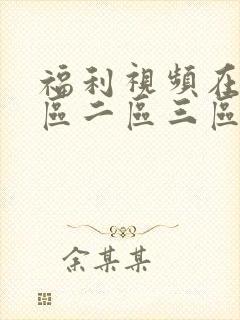 福利視頻在
區二區三區
余某某